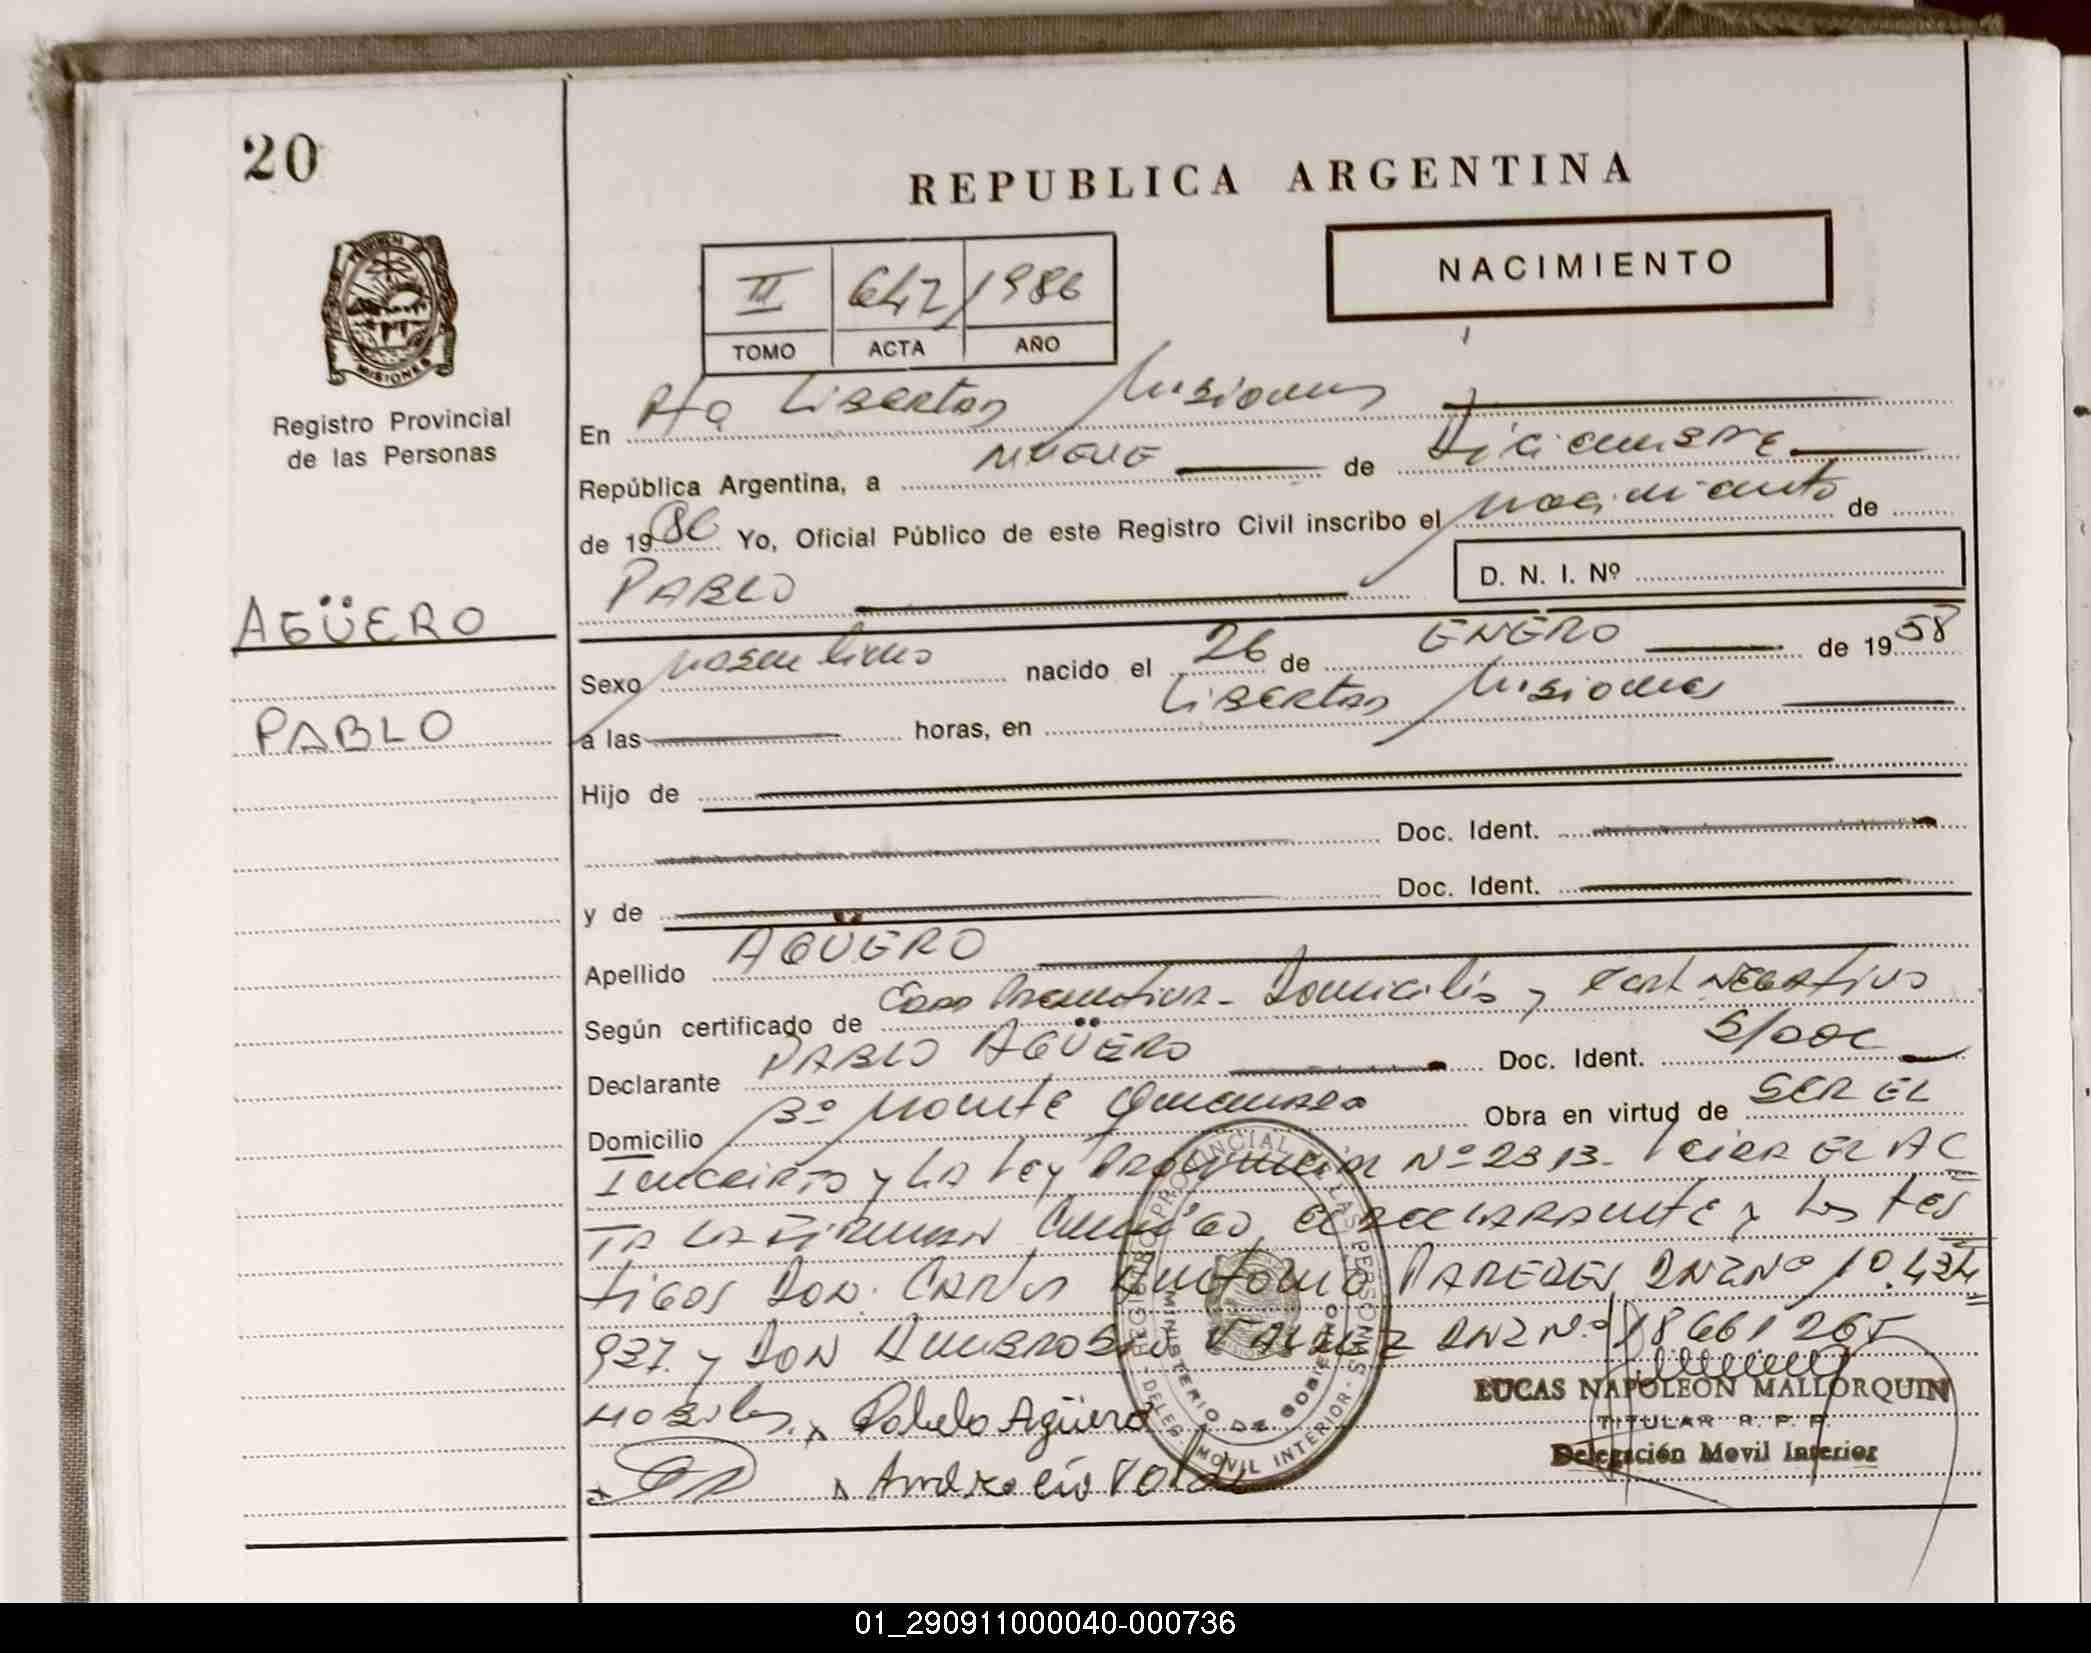 20
REPUBLICA ARGENTINA
NACIMIENTO
II 642 1986
TOMO ACTA AÑO
MISIONES
Registro Provincial
de las Personas
AGÜERO
PABLO
En Pto Libertad Misiones
República Argentina, a nueve de Diciembre
de 1986 Yo, Oficial Público de este Registro Civil inscribo el nacimiento de
PABLO D. N. I. Nº
Sexo masculino nacido el 26 de ENERO de 1958
a las horas, en Libertad Misiones
Hijo de
Doc. Ident.
y de Doc. Ident.
Apellido AGÜERO
Según certificado de Domicilio y Negativo
Declarante PABLO AGÜERO Doc. Ident. S/DOC
Domicilio Bº Monte Obra en virtud de SER EL
Inscripto y la Ley Provincial Nº 2313. Leida EL AC
TA LA FIRMAN conmigo, el declarante y los tes
tigos Don. Carlos Antonio PAREDES DNI Nº 10.434
937. y DON Ambrosio VALDEZ DNI N.º 18661265
Pablo Agüero
LUCAS NAPOLEON MALLORQUIN
TITULAR R. P. P.
Delegación Movil Interior
REGISTRO PROVINCIAL DE LAS PERSONAS
MINISTERIO DE GOBIERNO
DELEG. MOVIL INTERIOR
01_290911000040-000736